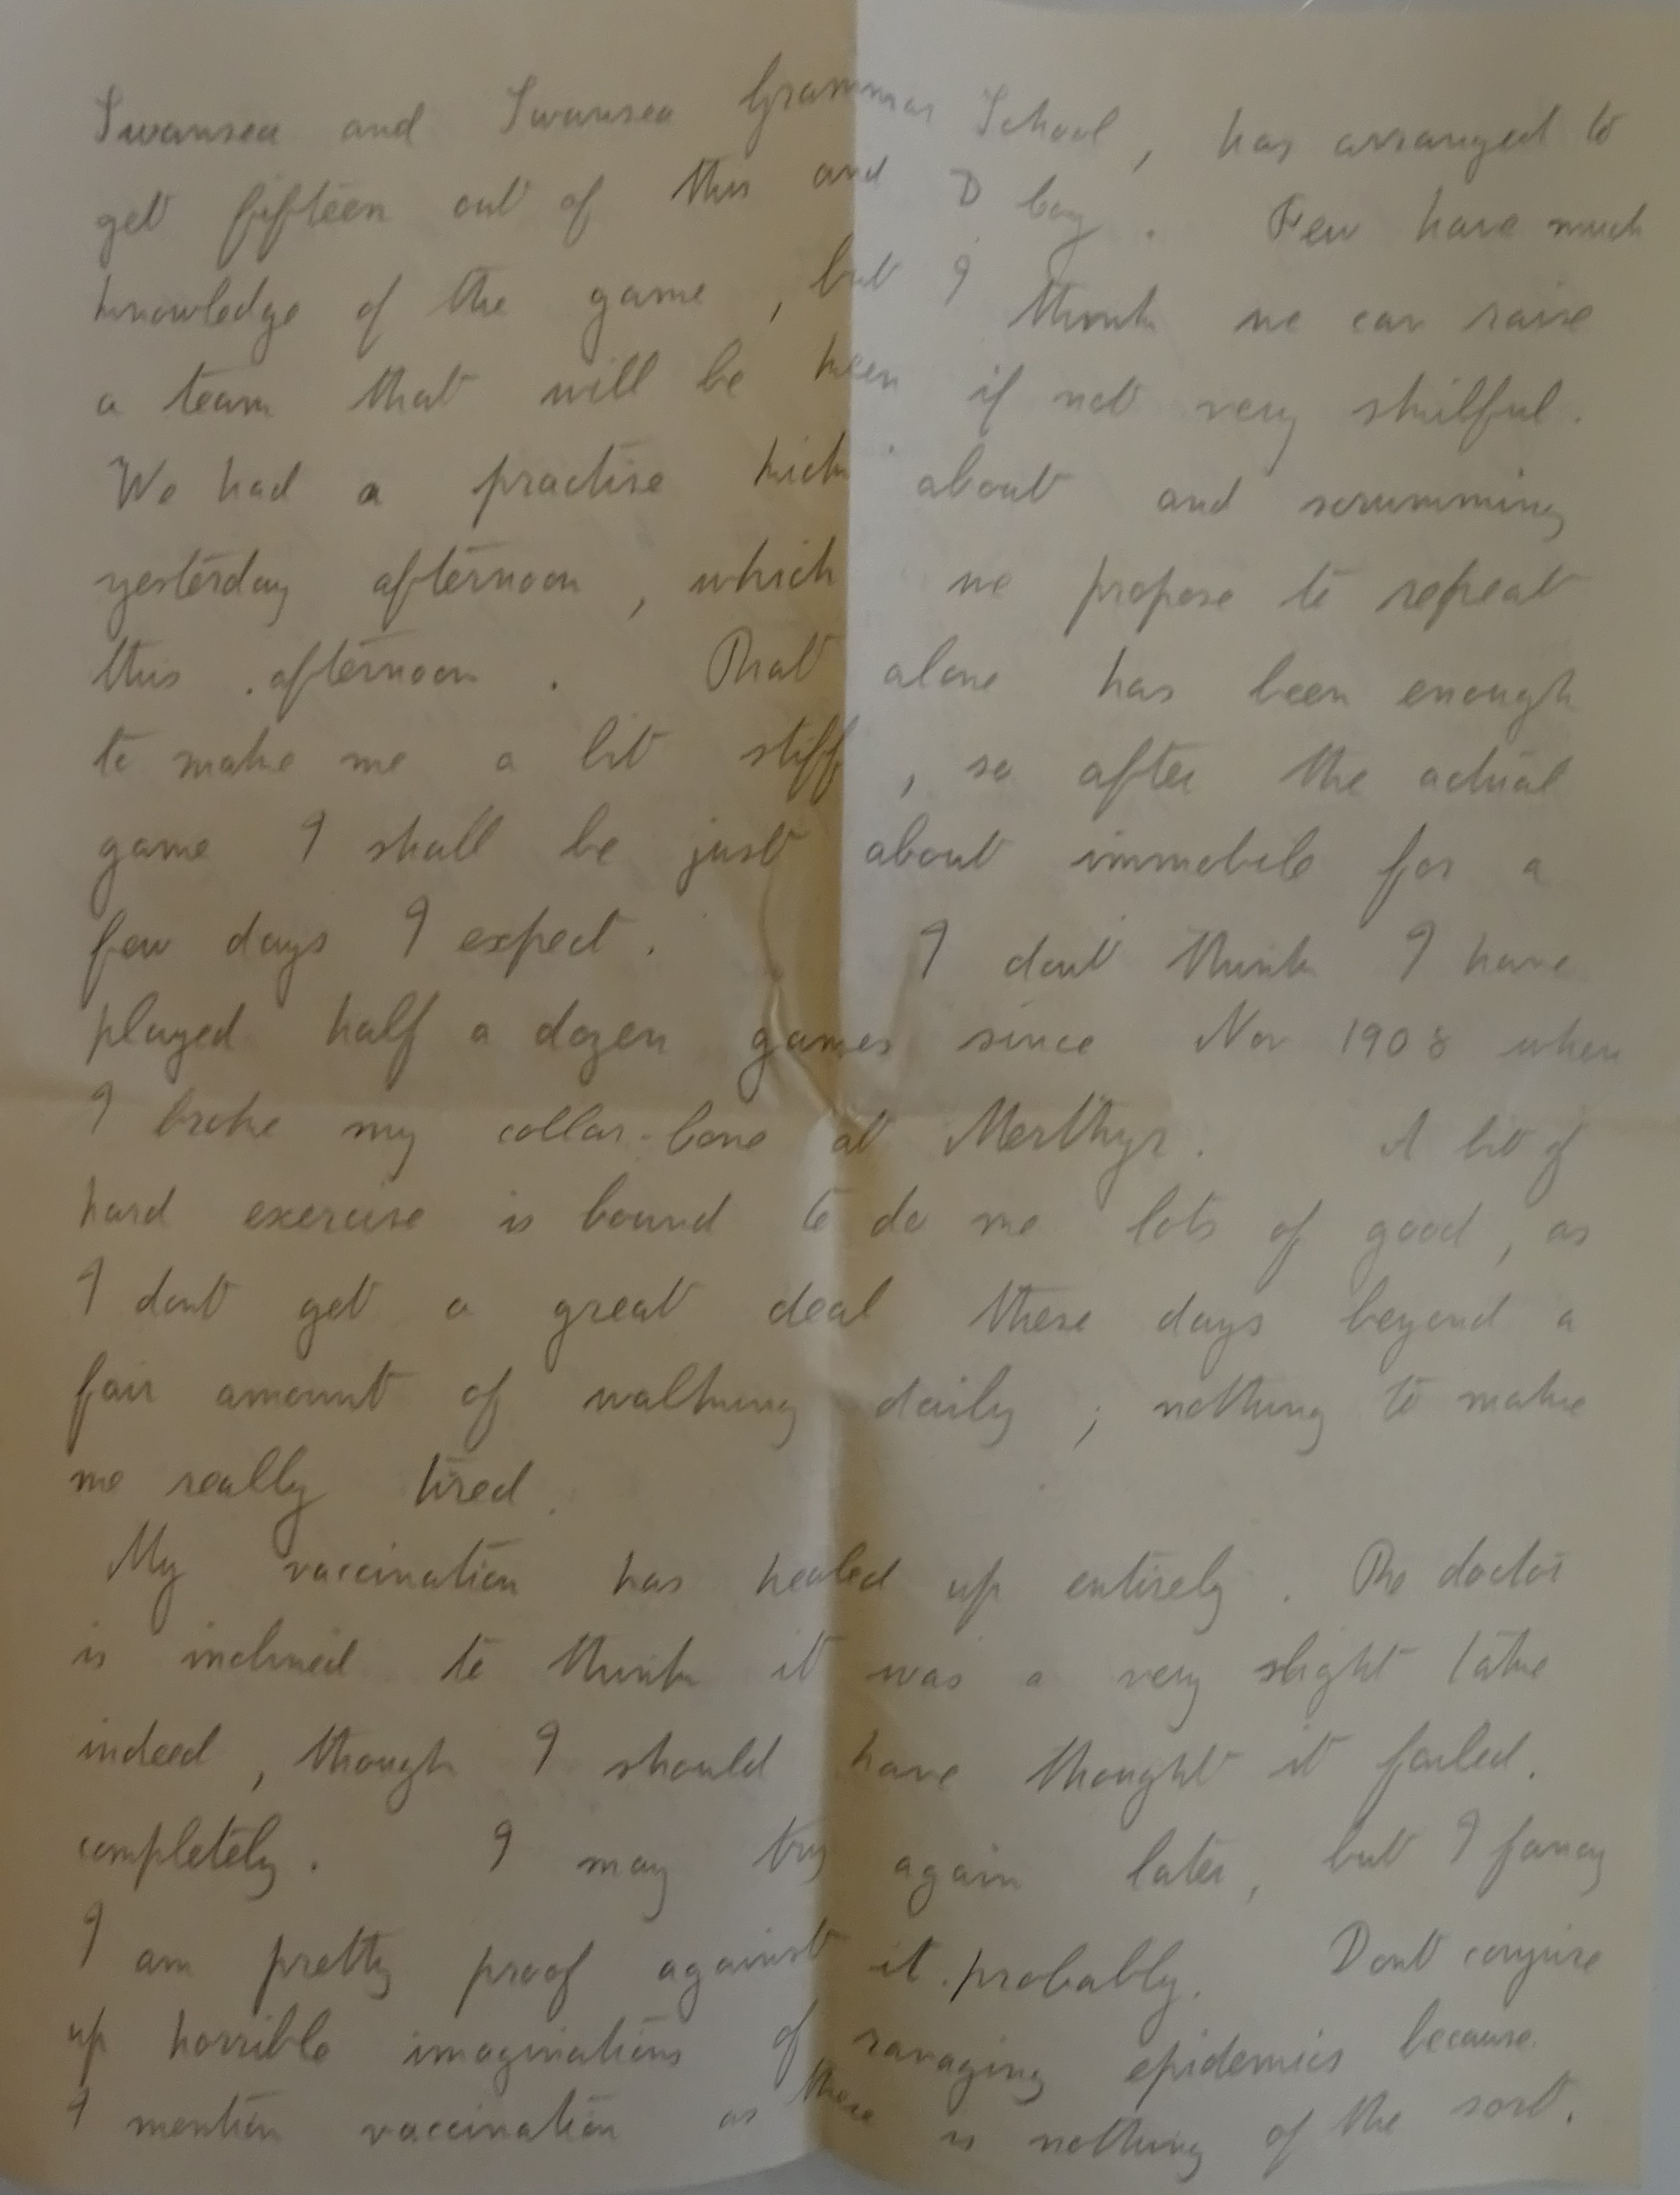 Swansea and Swansea Grammar School, has arranged to
get fifteen out of this and D boy. Few have much
knowledge of the game, but I think we can raise
a team that will be keen if not very skilful.
We had a practise kick about and scrumming
yesterday afternoon, which we propose to repeat
this afternoon. That alone has been enough
to make me a bit stiff, so after the actual
game I shall be just about immobile for a
few days I expect. I dont think I have
played half a dozen games since Nov 1908 when
I broke my collar-bone at Merthyr. A bit of
hard exercise is bound to do me lots of good, as
I dont get a great deal these days beyond a
fair amount of walking daily; nothing to make
me really tired.
My vaccination has healed up entirely. The doctor
is inclined to think it was a very slight take
indeed, though I should have thought it failed.
completely. I may try again later, but I fancy
I am pretty proof against it probably. Dont conjure
up horrible imaginations of ravaging epidemics because
I mention vaccination as there is nothing of the sort.